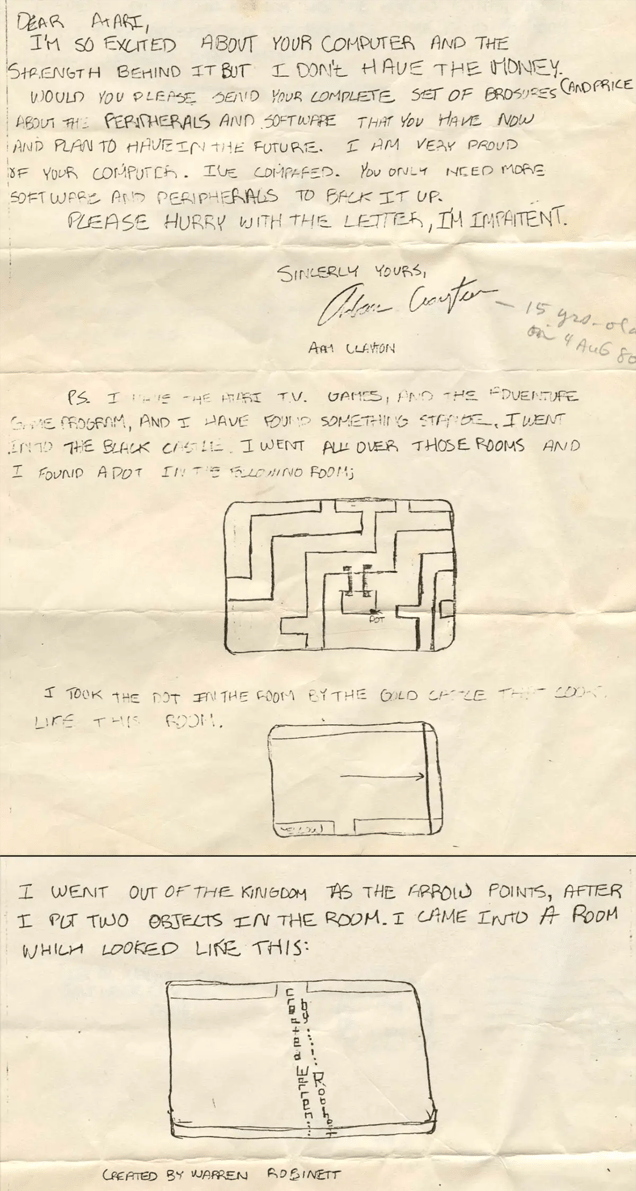 DEAR ATARI,
I'M SO EXCITED ABOUT YOUR COMPUTER AND THE
STRENGTH BEHIND IT BUT I DON'T HAVE THE MONEY.
WOULD YOU PLEASE SEND YOUR COMPLETE SET OF BROSURES (AND PRICE
ABOUT THE PERIPHERALS AND SOFTWARE THAT YOU HAVE NOW
AND PLAN TO HAVE IN THE FUTURE. I AM VERY PROUD
OF YOUR COMPUTER. I'VE COMPARED. YOU ONLY NEED MORE
SOFTWARE AND PERIPHERALS TO BACK IT UP.
PLEASE HURRY WITH THE LETTER, I'M IMPAITENT.
SINCERLY YOURS,
Adam Clayton — 15 yrs-old
on 4 AUG 80
CLAYTON
PS. I HAVE THE ATARI T.V. GAMES, AND THE ADVENTURE
GAME PROGRAM, AND I HAVE FOUND SOMETHING STANGE. I WENT
INTO THE BLACK CASTLE. I WENT ALL OVER THOSE ROOMS AND
I FOUND A DOT IN THE FOLLOWING ROOM;
DOT
I TOOK THE DOT IN THE ROOM BY THE GOLD CASTLE THAT LOOKS
LIKE THIS ROOM.
YELLOW
I WENT OUT OF THE KINGDOM AS THE ARROW POINTS, AFTER
I PUT TWO OBJECTS IN THE ROOM. I CAME INTO A ROOM
WHICH LOOKED LIKE THIS:
created
by
Warren
Robinett
CREATED BY WARREN ROBINETT